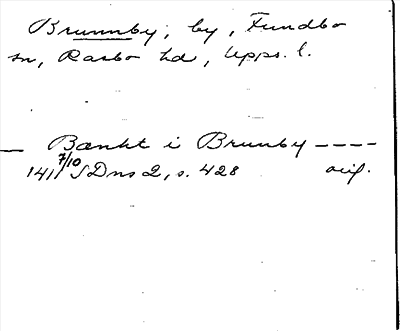 Brunnby, by, Fundbo
sn, Rasbo hd, Upps. l.
— Bænkt i Brunby ----
1411 7/10 SDns 2, s. 428 orig.